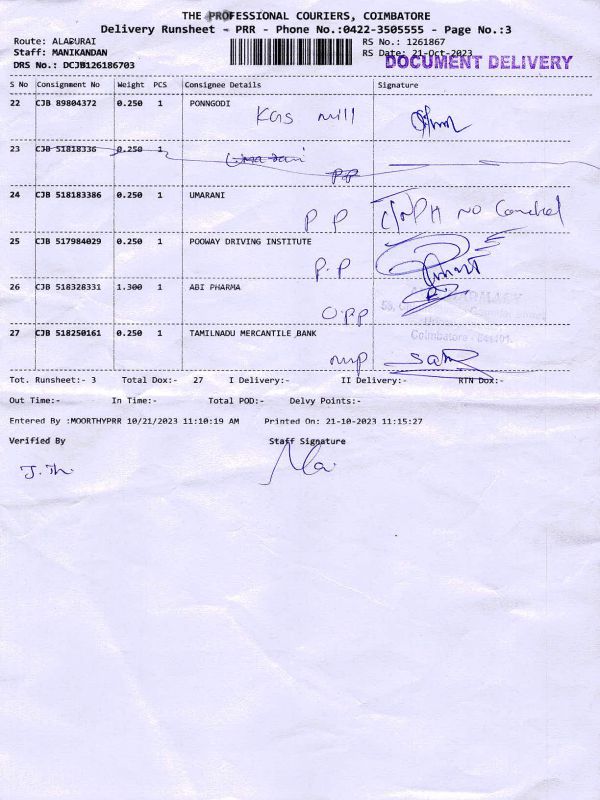 THE PROFESSIONAL COURIERS, COIMBATORE
Delivery Runsheet - PRR - Phone No.:0422-3505555 - Page No.:3
Route: ALADURAI
RS No.: 1261867
Staff: MANIKANDAN
RS Date: 21-Oct-2023
DOCUMENT DELIVERY
DRS No.: DCJB126186703
S No Consignment No Weight PCS Consignee Details Signature
22 CJB 89804372 0.250 1 PONNGODI
KGS mill
23 CJB 51818336 0.250 1
Umarani
PP
24 CJB 518183386 0.250 1 UMARANI
PP
No
25 CJB 517984029 0.250 1 POOWAY DRIVING INSTITUTE
P.P
26 CJB 518328331 1.300 1 ABI PHARMA
O.PP
Coimbatore
27 CJB 518250161 0.250 1 TAMILNADU MERCANTILE BANK
Tot. Runsheet:- 3 Total Dox:- 27 I Delivery:- II Delivery:- RTN Dox:-
Out Time:- In Time:- Total POD:- Delvy Points:-
Entered By :MOORTHYPRR 10/21/2023 11:10:19 AM Printed On: 21-10-2023 11:15:27
Verified By Staff Signature